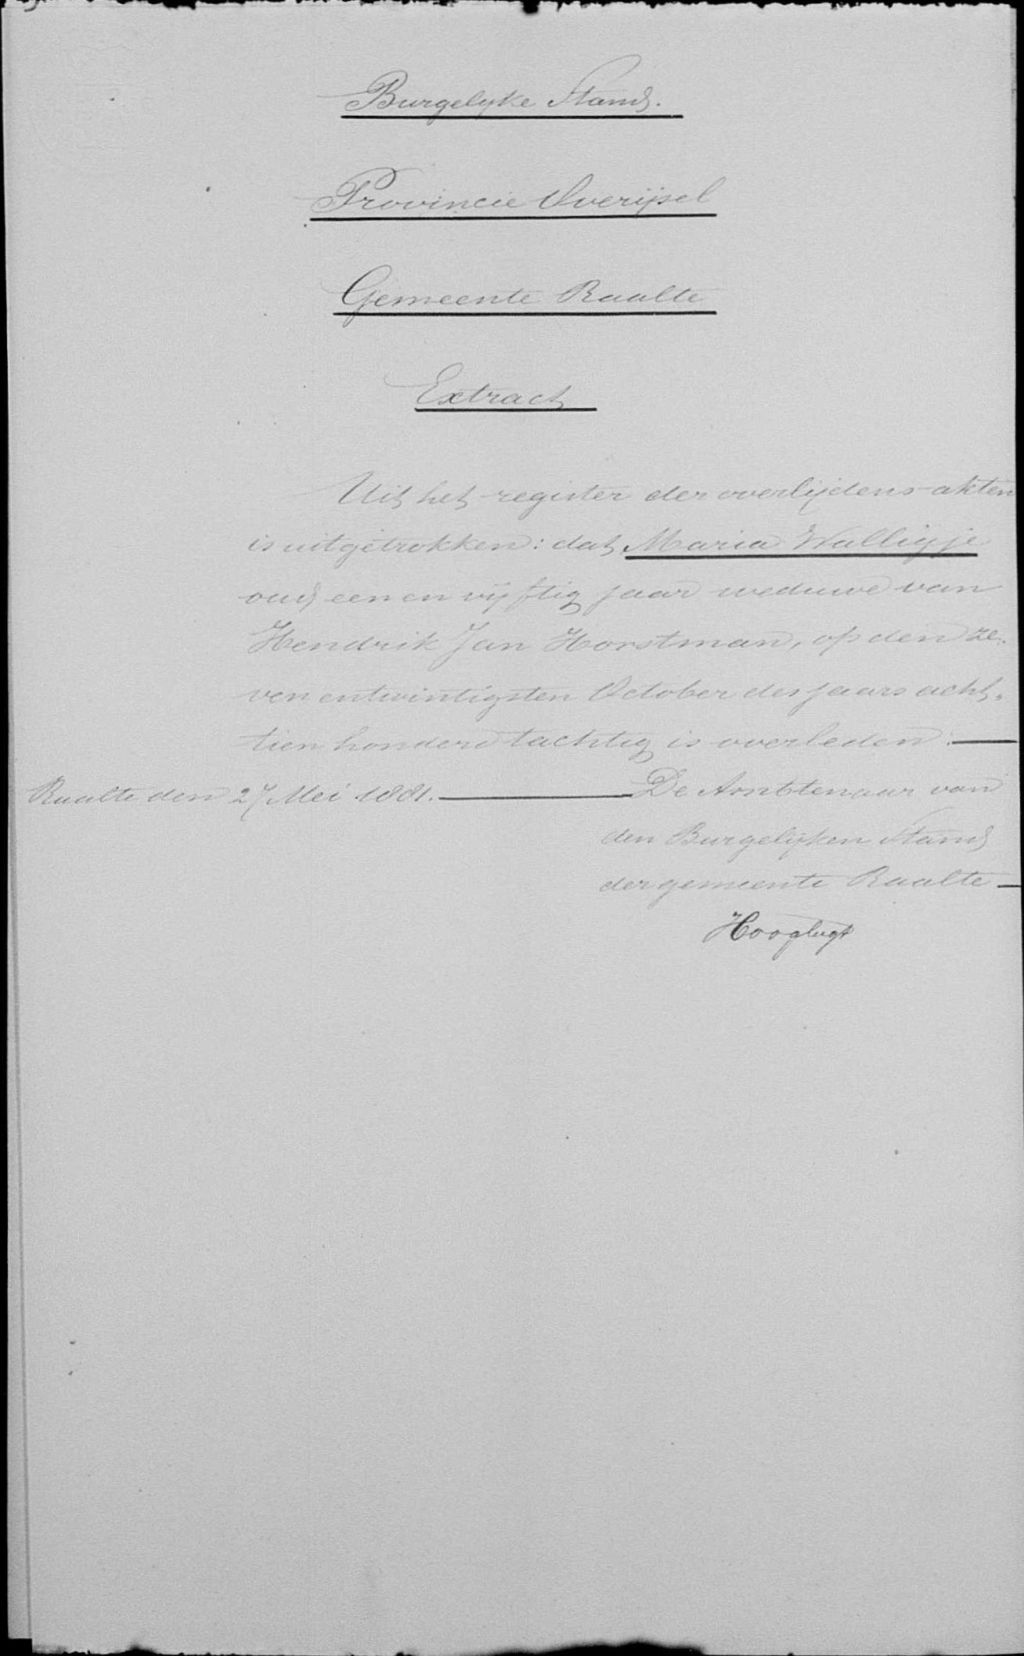 Burgelyke Stand.
Provincie Overijsel
Gemeente Raalte
Extract
Uit het register der overlijdens-akten
is uitgetrokken: dat Maria Walligje
oud een en vijftig jaar weduwe van
Hendrik Jan Horstman, op den ze-
ven entwintigsten October des jaars acht-
tien honderd tachtig is overleden.
Raalte den 27 Mei 1881. De Ambtenaar van
den Burgelijken Stand
der gemeente Raalte
Hooglugt